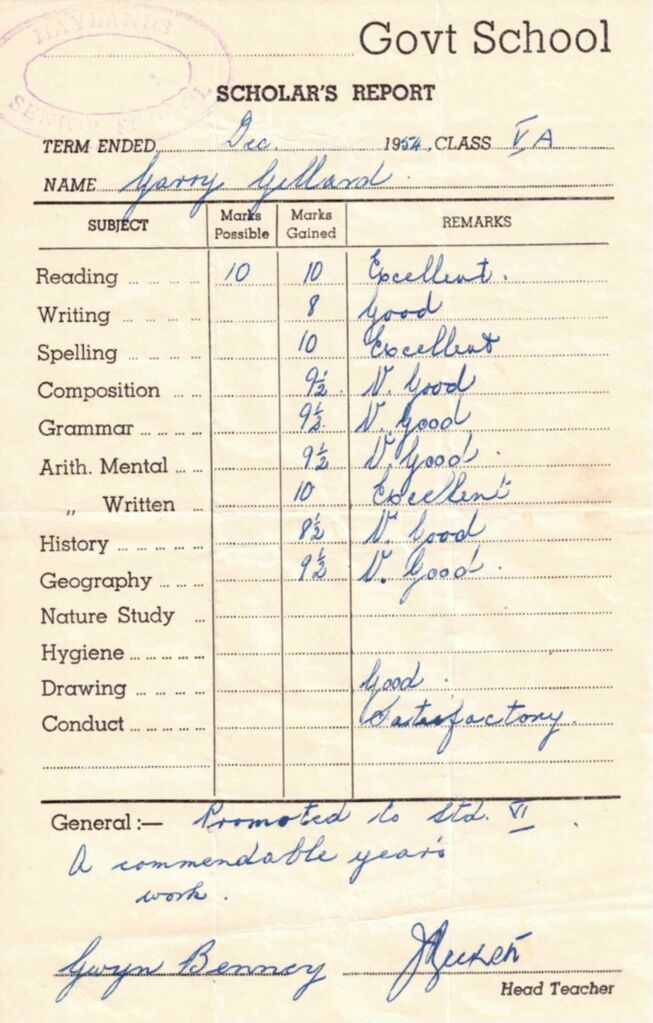 MAYLANDS
SENIOR SCHOOL
Govt School
SCHOLAR'S REPORT
TERM ENDED Dec. 1954. CLASS V A
NAME Garry Gillard.
SUBJECT Marks Possible Marks Gained REMARKS
Reading 10 10 Excellent.
Writing 8 Good
Spelling 10 Excellent
Composition 9½. V. Good
Grammar 9½ V. Good
Arith. Mental 9½ V. Good.
„ Written 10 Excellent
History 8½ V. Good
Geography 9½ V. Good.
Nature Study
Hygiene
Drawing Good.
Conduct Satisfactory.
General:— Promoted to Std. VI.
A commendable year's
work.
Gwyn Benney
Head Teacher